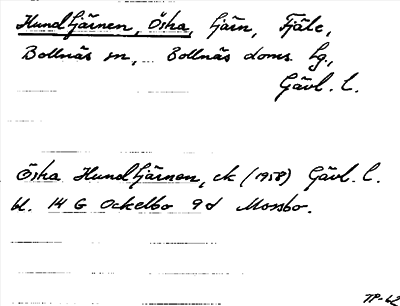 Hundtjärnen, Östra, tjärn, Fjäle,
Bollnäs sn, Bollnäs doms. hg.,
Gävl. l.
Östra Hundtjärnen, ek (1958) Gävl. l.
bl. 14 G Ockelbo 9d Mossbo.
TP-62